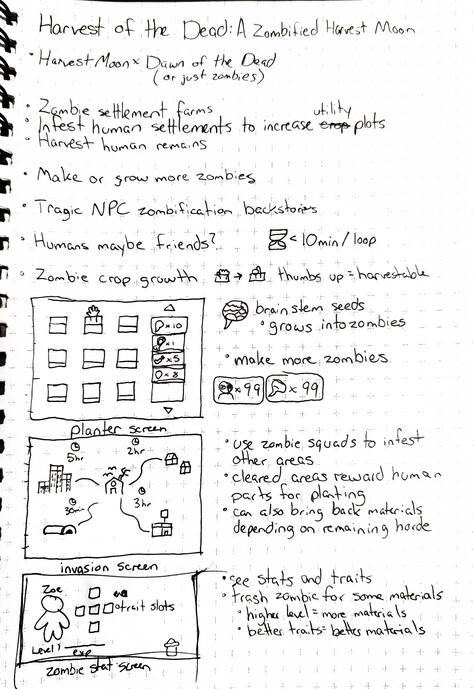 Harvest of the Dead: A Zombified Harvest Moon
• Harvest Moon x Dawn of the Dead
(or just zombies)
• Zombie settlement farms
utility
• Infest human settlements to increase crop plots
• Harvest human remains
• Make or grow more zombies
• Tragic NPC zombification backstories
• Humans maybe friends?
< 10 min / loop
• Zombie crop growth → thumbs up = harvestable
x 10
x 1
x 5
x 8
planter screen
brain stem seeds
• grows into zombies
• make more zombies
x 99
x 99
5hr
2hr
30min
3hr
invasion screen
• use zombie squads to infest
other areas
• cleared areas reward human
parts for planting
• can also bring back materials
depending on remaining horde
Zoe
trait slots
Level 1
exp
zombie stat screen
• see stats and traits
• trash zombie for some materials
• higher level = more materials
• better traits = better materials